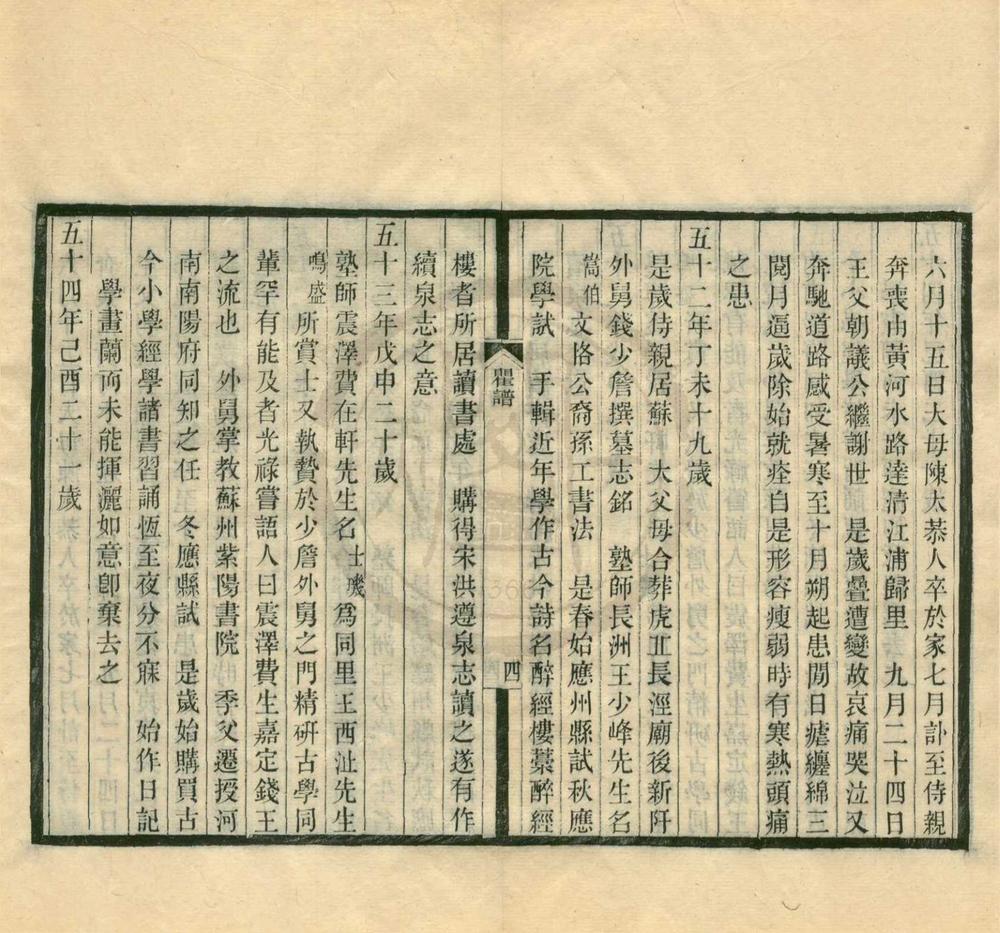 六月十五日大母陳太恭人卒於家七月訃至侍親
奔喪由黃河水路達清江浦歸里　九月二十四日
王父朝議公繼謝世　是歲疊遭變故哀痛哭泣又
奔馳道路感受暑寒至十月朔起患閒日瘧纏綿三
閱月逼歲除始就痊自是形容瘦弱時有寒熱頭痛
之患
五十二年丁未十九歲
是歲侍親居蘇　大父母合葬虎丠長涇廟後新阡
外舅錢少詹撰墓志銘　塾師長洲王少峰先生名
嵩伯文恪公裔孫工書法　是春始應州縣試秋應
院學試　手輯近年學作古今詩名醉經樓藁醉經
瞿譜
四
樓者所居讀書處　購得宋洪遵泉志讀之遂有作
續泉志之意
五十三年戊申二十歲
塾師震澤費在軒先生名士璣爲同里王西沚先生
鳴盛所賞士又執贄於少詹外舅之門精研古學同
輩罕有能及者光祿嘗語人曰震澤費生嘉定錢王
之流也　外舅掌教蘇州紫陽書院　季父遷授河
南南陽府同知之任　冬應縣試　是歲始購買古
今小學經學諸書習誦恆至夜分不寐　始作日記
學畫蘭而未能揮灑如意卽棄去之
五十四年己酉二十一歲